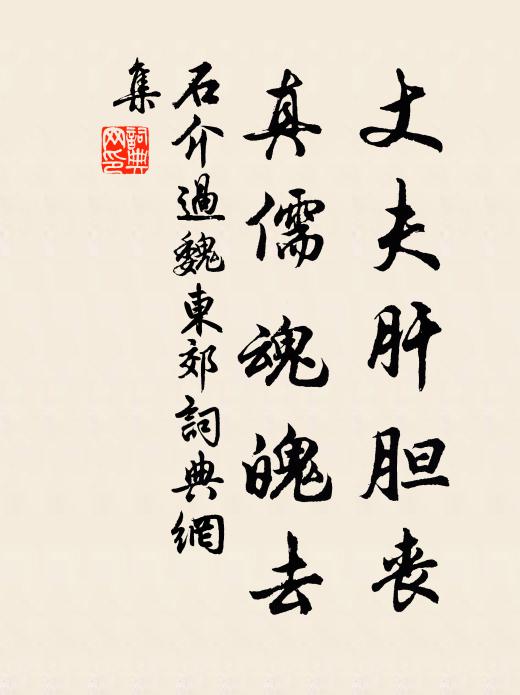 丈夫肝胆丧
真儒魂魄去
石介過魏東郊詞典網
集
詞典
网印